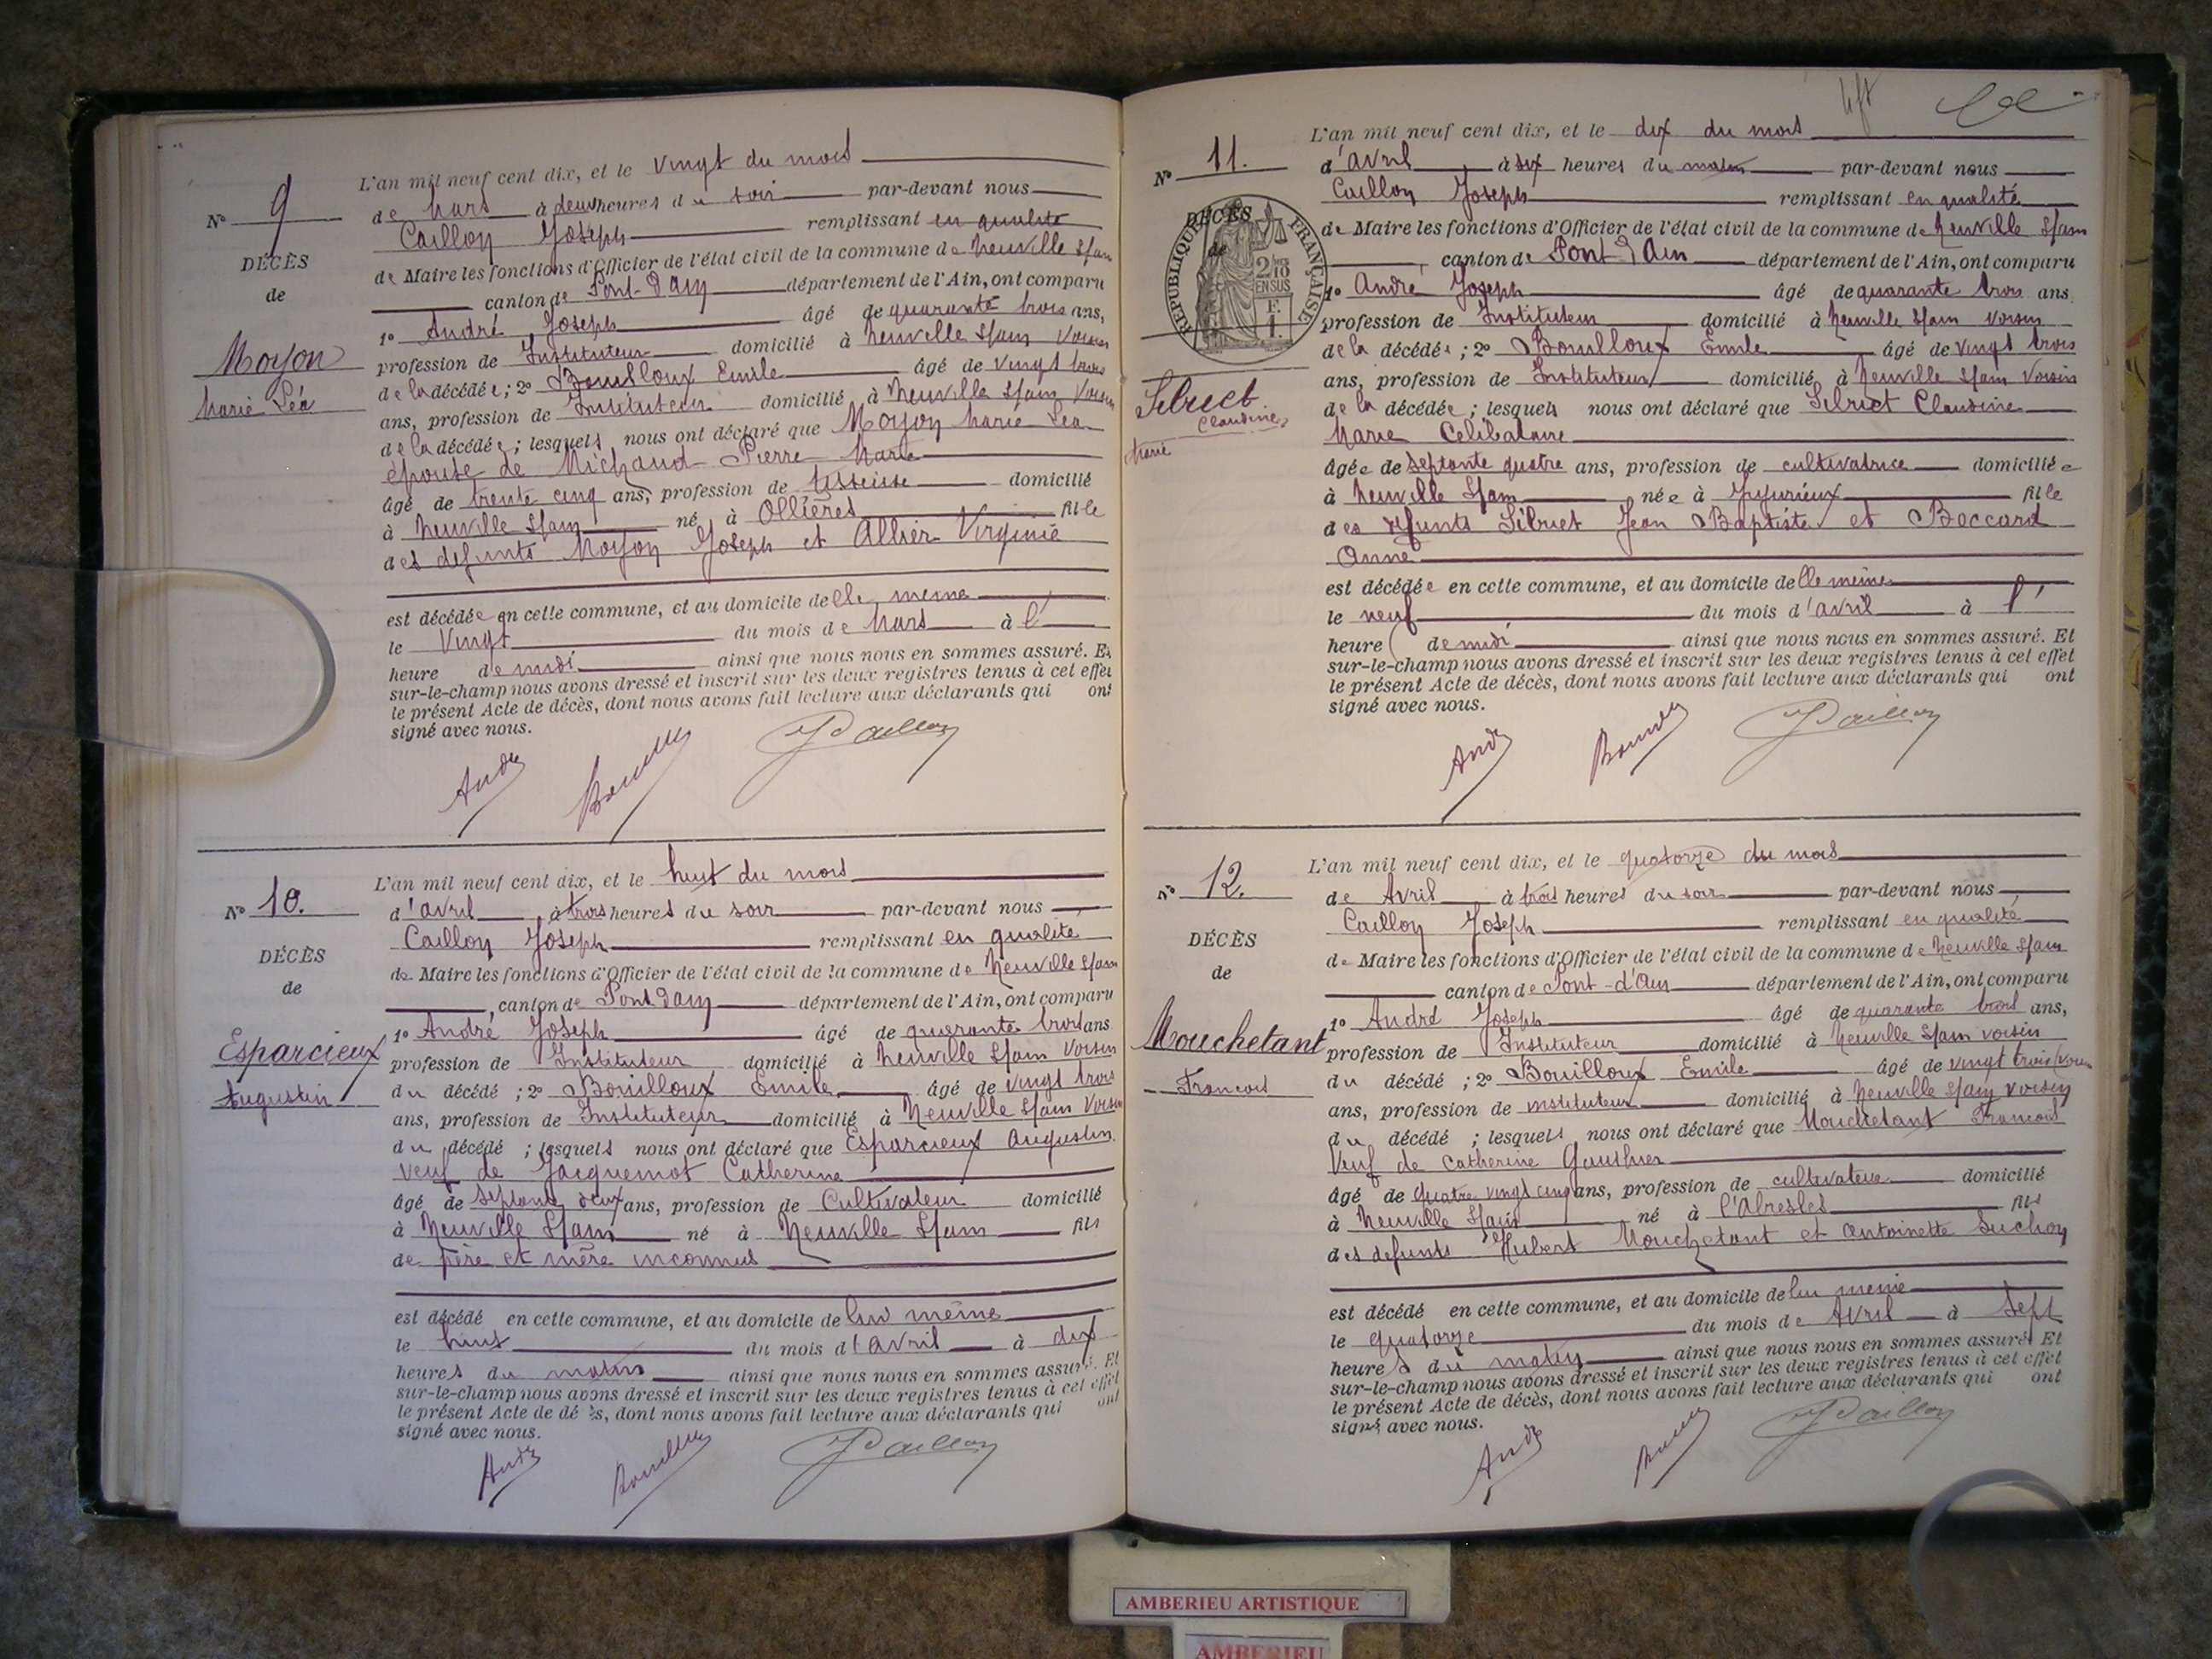 L'an mil neuf cent dix, et le vingt du mois
N° 9
de Mars à deux heures du soir par-devant nous
Caillon Joseph remplissant en qualité
DÉCÈS
de Maire les fonctions d'Officier de l'état civil de la commune de Neuville s/ain
de
canton de Pont-d'ain département de l'Ain, ont comparu
1° André Joseph âgé de quarante trois ans,
Moyon
profession de Instituteur domicilié à Neuville s/ain voisin
Marie Léa
de la décédée ; 2° Bouilloux Emile âgé de vingt trois
ans, profession de Instituteur domicilié à Neuville s/ain voisin
de la décédée ; lesquels nous ont déclaré que Moyon Marie Léa
épouse de Michaud Pierre Marie
âgé de trente cinq ans, profession de tisseuse domicilié
à Neuville s/ain né à Ollières fille
des defunts Moyon Joseph et Allier Virginie
est décédée en cette commune, et au domicile de elle meme
le Vingt du mois de Mars à l'
heure de midi ainsi que nous nous en sommes assuré. Et
sur-le-champ nous avons dressé et inscrit sur les deux registres tenus à cet effet
le présent Acte de décès, dont nous avons fait lecture aux déclarants qui ont
signé avec nous.
André Bouilloux JCaillon
L'an mil neuf cent dix, et le huit du mois
N° 10.
d'avril à trois heures du soir par-devant nous
DÉCÈS
Caillon Joseph remplissant en qualité
de
de Maire les fonctions d'Officier de l'état civil de la commune de Neuville s/ain
canton de Pont d'ain département de l'Ain, ont comparu
1° André Joseph âgé de quarante trois ans
Esparcieux
profession de Instituteur domicilié à Neuville s/ain voisin
Augustin
du décédé ; 2° Bouilloux Emile âgé de vingt trois
ans, profession de Instituteur domicilié à Neuville s/ain voisin
du décédé ; lesquels nous ont déclaré que Esparcieux Augustin
Veuf de Jacquemot Catherine
âgé de septante deux ans, profession de Cultivateur domicilié
à Neuville s/ain né à Neuville s/ain fils
de père et mère inconnus
est décédé en cette commune, et au domicile de lui même
le huit du mois d'avril à dix
heures du matin ainsi que nous nous en sommes assuré. Et
sur-le-champ nous avons dressé et inscrit sur les deux registres tenus à cet effet
le présent Acte de décès, dont nous avons fait lecture aux déclarants qui ont
signé avec nous.
André Bouilloux JCaillon
L'an mil neuf cent dix, et le dix du mois
N° 11.
d'avril à six heures du matin par-devant nous
Caillon Joseph remplissant en qualité
DÉCÈS
de
RÉPUBLIQUE FRANÇAISE
2/10 EN SUS
de Maire les fonctions d'Officier de l'état civil de la commune de Neuville s/ain
canton de Pont d'Ain département de l'Ain, ont comparu
1° André Joseph âgé de quarante trois ans
profession de Instituteur domicilié à Neuville s/ain voisin
de la décédée ; 2° Bouilloux Emile âgé de vingt trois
Silvict
Claudine
Marie
ans, profession de Instituteur domicilié à Neuville s/ain voisin
de la décédée ; lesquels nous ont déclaré que Silvict Claudine
Marie Celibataire
âgée de septante quatre ans, profession de cultivatrice domiciliée
à Neuville s/ain née à Jujurieux fille
des defunts Silvict Jean Baptiste et Boccard
Anne
est décédée en cette commune, et au domicile de elle meme
le neuf du mois d'avril à l'
heure de midi ainsi que nous nous en sommes assuré. Et
sur-le-champ nous avons dressé et inscrit sur les deux registres tenus à cet effet
le présent Acte de décès, dont nous avons fait lecture aux déclarants qui ont
signé avec nous.
André Bouilloux JCaillon
L'an mil neuf cent dix, et le quatorze du mois
N° 12.
de Avril à trois heures du soir par-devant nous
Caillon Joseph remplissant en qualité
DÉCÈS
de Maire les fonctions d'Officier de l'état civil de la commune de Neuville s/ain
de
canton de Pont-d'ain département de l'Ain, ont comparu
1° André Joseph âgé de quarante trois ans,
Mouchetant
profession de Instituteur domicilié à Neuville s/ain voisin
Francois
du décédé ; 2° Bouilloux Emile âgé de vingt trois
ans, profession de instituteur domicilié à Neuville s/ain voisin
du décédé ; lesquels nous ont déclaré que Mouchetant Francois
Veuf de Catherine Gauthier
âgé de quatre vingt cinq ans, profession de cultivateur domicilié
à Neuville s/ain né à l'Abresles fils
des defunts Hubert Mouchetant et Antoinette Suchon
est décédé en cette commune, et au domicile de lui meme
le quatorze du mois de Avril à sept
heures du matin ainsi que nous nous en sommes assuré. Et
sur-le-champ nous avons dressé et inscrit sur les deux registres tenus à cet effet
le présent Acte de décès, dont nous avons fait lecture aux déclarants qui ont
signé avec nous.
André Bouilloux JCaillon
AMBERIEU ARTISTIQUE
AMBERIEU